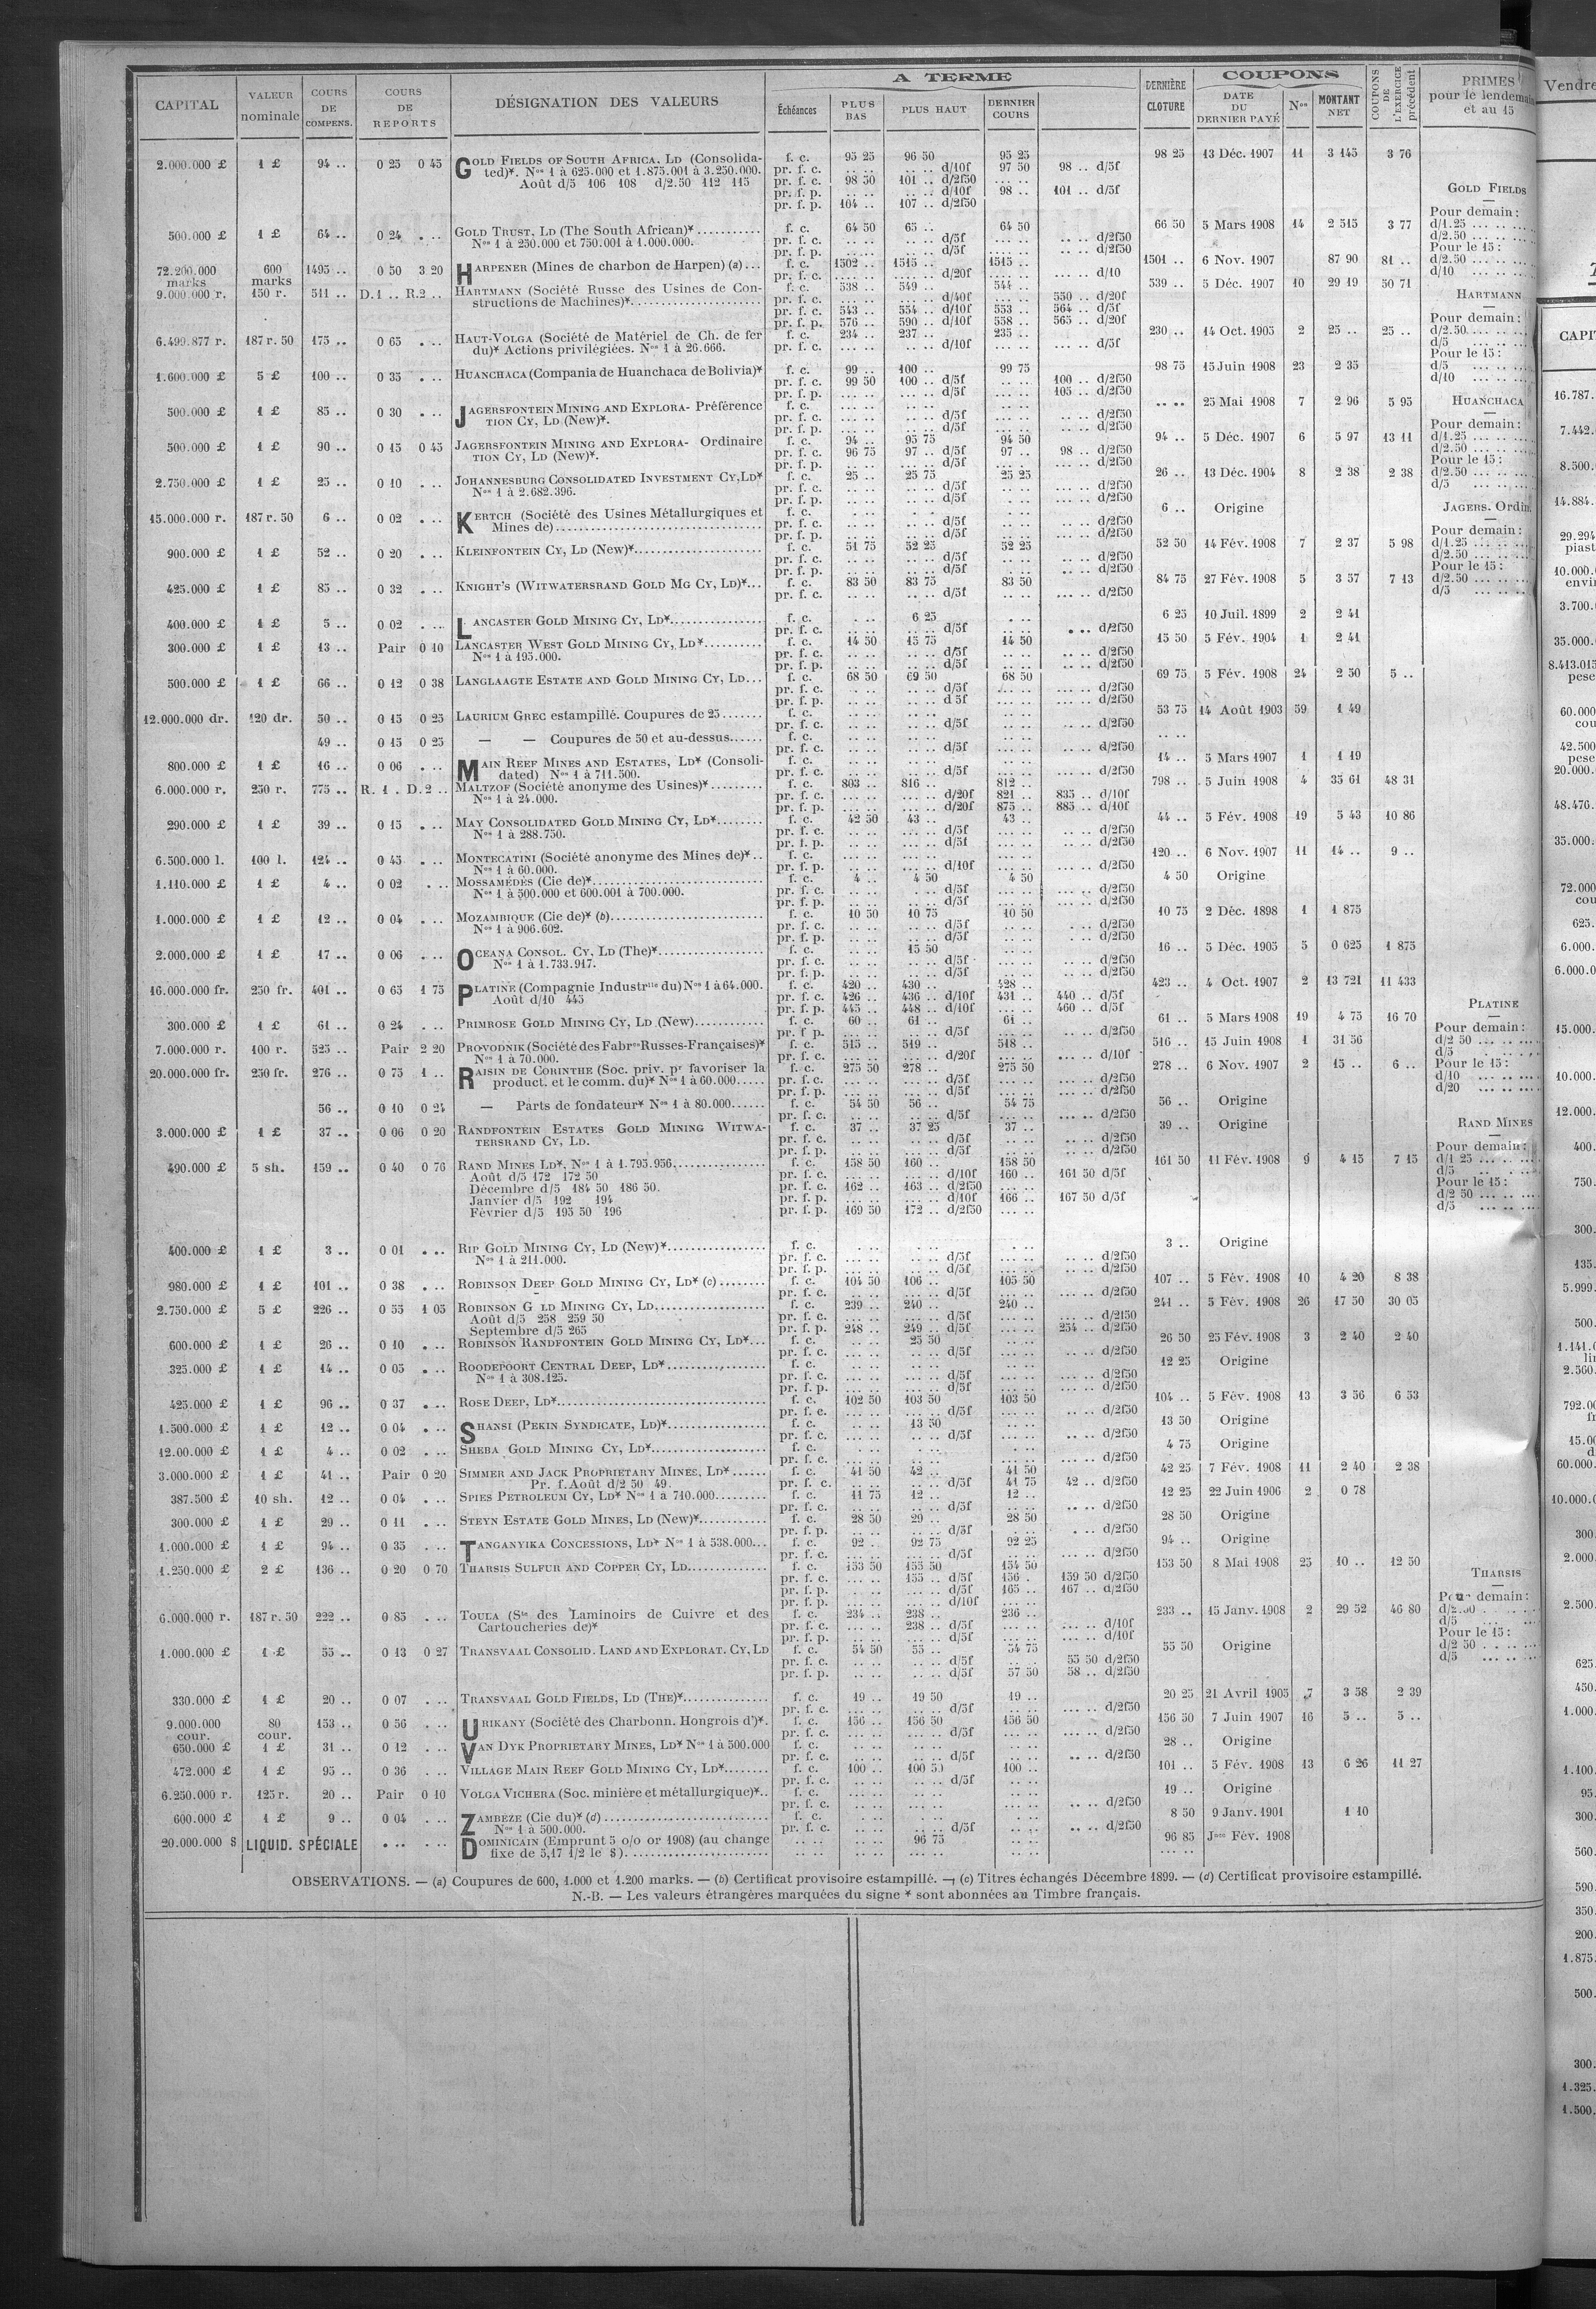 CAPITAL | VALEUR nominale | COURS DE COMPENS. | COURS DE REPORTS | DÉSIGNATION DES VALEURS | A TERME | DERNIÈRE CLOTURE | COUPONS | COUPONS DE L'EXERCICE précédent | PRIMES
Échéances | PLUS BAS | PLUS HAUT | DERNIER COURS | DATE DU DERNIER PAYÉ | Nos | MONTANT NET | pour le lendemain et au 15
2.000.000 £ 1 £ 94 .. 0 25 0 45 GOLD FIELDS OF SOUTH AFRICA. LD (Consolida- f. c. 95 25 96 50 95 25 98 25 13 Déc. 1907 11 3 145 3 76
ted)*. Nos 1 à 625.000 et 1.875.001 à 3.250.000. pr. f. c. .. .. .. .. d/10f 97 50 98 .. d/5f
Août d/5 106 108 d/2.50 112 115 pr. f. c. 98 50 101 .. d/2f50 .. ..
pr. f. p. .. .. .. .. d/10f 98 .. 101 .. d/5f
pr. f. p. 104 .. 107 .. d/2f50
500.000 £ 1 £ 64 .. 0 24 . .. GOLD TRUST. LD (The South African)* f. c. 64 50 65 .. 64 50 66 50 5 Mars 1908 14 2 515 3 77
Nos 1 à 250.000 et 750.001 à 1.000.000. pr. f. c. .. .. .. .. d/5f .. .. .. .. d/2f50
pr. f. p. .. .. .. .. d/5f .. .. .. .. d/2f50
72.200.000 marks 600 marks 1495 .. 0 50 3 20 HARPENER (Mines de charbon de Harpen) (a) f. c. 1502 .. 1515 .. 1515 .. 1501 .. 6 Nov. 1907 87 90 81 ..
pr. f. c. .... .. .... .. d/20f .... .. .... .. d/10
9.000.000 r. 150 r. 511 .. D.1 .. R.2 .. HARTMANN (Société Russe des Usines de Con- f. c. 538 .. 549 .. 544 .. 539 .. 5 Déc. 1907 10 29 19 50 71
structions de Machines)* pr. f. c. ... .. ... .. d/40f ... .. 550 .. d/20f
pr. f. c. 543 .. 554 .. d/10f 553 .. 564 .. d/5f
pr. f. p. 576 .. 590 .. d/10f 558 .. 565 .. d/20f
6.499.877 r. 187 r. 50 175 .. 0 65 . .. HAUT-VOLGA (Société de Matériel de Ch. de fer f. c. 234 .. 237 .. 235 .. 230 .. 14 Oct. 1905 2 25 .. 25 ..
du)* Actions privilégiées. Nos 1 à 26.666. pr. f. c. ... .. ... .. d/10f ... .. ... .. d/5f
1.600.000 £ 5 £ 100 .. 0 35 . .. HUANCHACA (Compania de Huanchaca de Bolivia)* f. c. 99 .. 100 .. 99 75 98 75 15 Juin 1908 23 2 35
pr. f. c. 99 50 100 .. d/5f .. .. 100 .. d/2f50
pr. f. p. .. .. .. .. d/5f .. .. 105 .. d/2f50
500.000 £ 1 £ 85 .. 0 30 . .. JAGERSFONTEIN MINING AND EXPLORA- Préférence f. c. .. .. .. .. .. .. .. .. 25 Mai 1908 7 2 96 5 95
TION CY, LD (New)*. pr. f. c. .. .. .. .. d/5f .. .. .. .. d/2f50
pr. f. p. .. .. .. .. d/5f .. .. .. .. d/2f50
500.000 £ 1 £ 90 .. 0 15 0 45 JAGERSFONTEIN MINING AND EXPLORA- Ordinaire f. c. 94 .. 95 75 94 50 94 .. 5 Déc. 1907 6 5 97 13 11
TION CY, LD (New)*. pr. f. c. 96 75 97 .. d/5f 97 .. 98 .. d/2f50
pr. f. p. .. .. .. .. d/5f .. .. .. .. d/2f50
2.750.000 £ 1 £ 25 .. 0 10 . .. JOHANNESBURG CONSOLIDATED INVESTMENT CY, LD* f. c. 25 .. 25 75 25 25 26 .. 13 Déc. 1904 8 2 38 2 38
Nos 1 à 2.682.396. pr. f. c. .. .. .. .. d/5f .. .. .. .. d/2f50
pr. f. p. .. .. .. .. d/5f .. .. .. .. d/2f50
15.000.000 r. 187 r. 50 6 .. 0 02 . .. KERTCH (Société des Usines Métallurgiques et f. c. .. .. .. .. .. .. 6 .. Origine
Mines de) pr. f. c. .. .. .. .. d/5f .. .. .. .. d/2f50
pr. f. p. .. .. .. .. d/5f .. .. .. .. d/2f50
900.000 £ 1 £ 52 .. 0 20 . .. KLEINFONTEIN CY, LD (New)* f. c. 51 75 52 25 52 25 52 50 14 Fév. 1908 7 2 37 5 98
pr. f. c. .. .. .. .. d/5f .. .. .. .. d/2f50
pr. f. p. .. .. .. .. d/5f .. .. .. .. d/2f50
425.000 £ 1 £ 85 .. 0 32 . .. KNIGHT'S (WITWATERSRAND GOLD MG CY, LD)* f. c. 83 50 83 75 83 50 84 75 27 Fév. 1908 5 3 57 7 13
pr. f. c. .. .. .. .. d/5f .. .. .. .. d/2f50
400.000 £ 1 £ 5 .. 0 02 . .. LANCASTER GOLD MINING CY, LD* f. c. . .. 6 25 . .. 6 25 10 Juil. 1899 2 2 41
pr. f. c. .. .. .. .. d/5f .. .. . .. d/2f50
300.000 £ 1 £ 13 .. Pair 0 10 LANCASTER WEST GOLD MINING CY, LD* f. c. 14 50 15 75 14 50 15 50 5 Fév. 1904 1 2 41
Nos 1 à 195.000. pr. f. c. .. .. .. .. d/5f .. .. .. .. d/2f50
pr. f. p. .. .. .. .. d/5f .. .. .. .. d/2f50
500.000 £ 1 £ 66 .. 0 12 0 38 LANGLAAGTE ESTATE AND GOLD MINING CY, LD f. c. 68 50 69 50 68 50 69 75 5 Fév. 1908 24 2 50 5 ..
pr. f. c. .. .. .. .. d/5f .. .. .. .. d/2f50
pr. f. p. .. .. .. .. d 5f .. .. .. .. d/2f50
12.000.000 dr. 120 dr. 50 .. 0 15 0 25 LAURIUM GREC estampillé. Coupures de 25 f. c. .. .. .. .. .. .. 53 75 14 Août 1903 59 1 49
pr. f. c. .. .. .. .. d/5f .. .. .. .. d/2f50
49 .. 0 15 0 25 — — Coupures de 50 et au-dessus f. c. .. .. .. .. .. .. .. ..
pr. f. c. .. .. .. .. d/5f .. .. .. .. d/2f50
800.000 £ 1 £ 16 .. 0 06 . .. MAIN REEF MINES AND ESTATES, LD* (Consoli- f. c. .. .. .. .. .. .. 14 .. 5 Mars 1907 1 1 19
dated) Nos 1 à 711.500. pr. f. c. .. .. .. .. d/5f .. .. .. .. d/2f50
6.000.000 r. 250 r. 775 .. R. 1 . D. 2 .. MALTZOF (Société anonyme des Usines)* f. c. 803 .. 816 .. 812 .. 798 .. 5 Juin 1908 4 35 61 48 31
Nos 1 à 24.000. pr. f. c. ... .. ... .. d/20f 821 .. 835 .. d/10f
pr. f. p. ... .. ... .. d/20f 875 .. 885 .. d/10f
290.000 £ 1 £ 39 .. 0 15 . .. MAY CONSOLIDATED GOLD MINING CY, LD* f. c. 42 50 43 .. 43 .. 44 .. 5 Fév. 1908 19 5 43 10 86
Nos 1 à 288.750. pr. f. c. .. .. .. .. d/5f .. .. .. .. d/2f50
pr. f. p. .. .. .. .. d/5f .. .. .. .. d/2f50
6.500.000 l. 100 l. 124 .. 0 45 . .. MONTECATINI (Société anonyme des Mines de)* f. c. ... .. ... .. ... .. 120 .. 6 Nov. 1907 11 14 .. 9 ..
Nos 1 à 60.000. pr. f. p. ... .. ... .. d/10f ... .. ... .. d/2f50
1.110.000 £ 1 £ 4 .. 0 02 . .. MOSSAMÉDÈS (Cie de)* f. c. 4 .. 4 50 4 50 4 50 Origine
Nos 1 à 500.000 et 600.001 à 700.000. pr. f. c. .. .. .. .. d/5f .. .. .. .. d/2f50
pr. f. p. .. .. .. .. .. .. .. .. d/2f50
1.000.000 £ 1 £ 12 .. 0 04 . .. MOZAMBIQUE (Cie de)* (b) f. c. 10 50 10 75 10 50 10 75 2 Déc. 1898 1 1 875
Nos 1 à 906.602. pr. f. c. .. .. .. .. d/5f .. .. .. .. d/2f50
pr. f. p. .. .. .. .. d/5f .. .. .. .. d/2f50
2.000.000 £ 1 £ 17 .. 0 06 . .. OCEANA CONSOL. CY, LD (The)* f. c. .. .. 15 50 .. .. 16 .. 5 Déc. 1905 5 0 625 1 875
Nos 1 à 1.733.917. pr. f. c. .. .. .. .. d/5f .. .. .. .. d/2f50
pr. f. p. .. .. .. .. d/5f .. .. .. .. d/2f50
16.000.000 fr. 250 fr. 401 .. 0 65 1 75 PLATINE (Compagnie Industrlle du) Nos 1 à 64.000. f. c. 420 .. 430 .. 428 .. 423 .. 4 Oct. 1907 2 13 721 11 433
Août d/10 445 pr. f. c. 426 .. 436 .. d/10f 431 .. 440 .. d/5f
pr. f. p. 445 .. 448 .. d/10f ... .. 460 .. d/5f
300.000 £ 1 £ 61 .. 0 24 . .. PRIMROSE GOLD MINING CY, LD (New) f. c. 60 .. 61 .. 61 .. 61 .. 5 Mars 1908 19 4 75 16 70
pr. f p. .. .. .. .. d/5f .. .. .. .. d/2f50
7.000.000 r. 100 r. 525 .. Pair 2 20 PROVODNIK (Société des Fabres Russes-Françaises)* f. c. 515 .. 519 .. 518 .. 516 .. 15 Juin 1908 1 31 56
Nos 1 à 70.000. pr. f. c. ... .. ... .. d/20f ... .. ... .. d/10f
20.000.000 fr. 250 fr. 276 .. 0 75 1 .. RAISIN DE CORINTHE (Soc. priv. pr favoriser la f. c. 275 50 278 .. 275 50 278 .. 6 Nov. 1907 2 15 .. 6 ..
product. et le comm. du)* Nos 1 à 60.000 pr. f. c. ... .. ... .. d/5f ... .. ... .. d/2f50
pr. f. p. ... .. ... .. d/5f ... .. ... .. d/2f50
56 .. 0 10 0 24 — Parts de fondateur* Nos 1 à 80.000 f. c. 54 50 56 .. 54 75 56 .. Origine
pr. f. c. .. .. .. .. d/5f .. .. .. .. d/2f50
3.000.000 £ 1 £ 37 .. 0 06 0 20 RANDFONTEIN ESTATES GOLD MINING WITWA- f. c. 37 .. 37 25 37 .. 39 .. Origine
TERSRAND CY, LD. pr. f. c. .. .. .. .. d/5f .. .. .. .. d/2f50
pr. f. p. .. .. .. .. d/5f .. .. .. .. d/2f50
490.000 £ 5 sh. 159 .. 0 40 0 76 RAND MINES LD*. Nos 1 à 1.795.956 f. c. 158 50 160 .. 158 50 161 50 11 Fév. 1908 9 4 15 7 15
Août d/5 172 172 50 pr. f. c. ... .. ... .. d/10f 160 .. 161 50 d/5f
Décembre d/5 184 50 186 50. pr. f. c. 162 .. 163 .. d/2f50 ... ..
Janvier d/5 192 194 pr. f. p. ... .. ... .. d/10f 166 .. 167 50 d/5f
Février d/5 195 50 196 pr. f. p. 169 50 172 .. d/2f50 ... ..
400.000 £ 1 £ 3 .. 0 01 . .. RIP GOLD MINING CY, LD (New)* f. c. . .. . .. . .. 3 .. Origine
Nos 1 à 211.000. pr. f. c. .. .. .. .. d/5f .. .. .. .. d/2f50
pr. f. p. .. .. .. .. d/5f .. .. .. .. d/2f50
980.000 £ 1 £ 101 .. 0 38 . .. ROBINSON DEEP GOLD MINING CY, LD* (c) f. c. 104 50 106 .. 105 50 107 .. 5 Fév. 1908 10 4 20 8 38
pr. f. c. ... .. ... .. d/5f ... .. ... .. d/2f50
2.750.000 £ 5 £ 226 .. 0 55 1 05 ROBINSON G LD MINING CY, LD f. c. 239 .. 240 .. 240 .. 241 .. 5 Fév. 1908 26 17 50 30 05
Août d/5 258 259 50 pr. f. c. ... .. ... .. d/5f ... .. ... .. d/2f50
Septembre d/5 265 pr. f. p. 248 .. 249 .. d/5f ... .. 254 .. d/2f50
600.000 £ 1 £ 26 .. 0 10 . .. ROBINSON RANDFONTEIN GOLD MINING CY, LD* f. c. .. .. 25 50 .. .. 26 50 25 Fév. 1908 3 2 40 2 40
pr. f. c. .. .. .. .. d/5f .. .. .. .. d/2f50
325.000 £ 1 £ 14 .. 0 05 . .. ROODEPOORT CENTRAL DEEP, LD* f. c. .. .. .. .. .. .. 12 25 Origine
Nos 1 à 308.125. pr. f. c. .. .. .. .. d/5f .. .. .. .. d/2f50
pr. f. p. .. .. .. .. d/5f .. .. .. .. d/2f50
425.000 £ 1 £ 96 .. 0 37 . .. ROSE DEEP, LD* f. c. 102 50 103 50 103 50 104 .. 5 Fév. 1908 13 3 56 6 53
pr. f. c. ... .. ... .. d/5f ... .. ... .. d/2f50
1.500.000 £ 1 £ 12 .. 0 04 . .. SHANSI (PEKIN SYNDICATE, LD)* f. c. .. .. 13 50 .. .. 13 50 Origine
pr. f. c. .. .. .. .. d/5f .. .. .. .. d/2f50
12.00.000 £ 1 £ 4 .. 0 02 . .. SHEBA GOLD MINING CY, LD* f. c. .. .. .. .. .. .. 4 75 Origine
pr. f. c. .. .. .. .. .. .. .. .. d/2f50
3.000.000 £ 1 £ 41 .. Pair 0 20 SIMMER AND JACK PROPRIETARY MINES, LD* f. c. 41 50 42 .. 41 50 42 25 7 Fév. 1908 11 2 40 2 38
Pr. f. Août d/2 50 49. pr. f. c. .. .. .. .. d/5f 41 75 42 .. d/2f50
387.500 £ 10 sh. 12 .. 0 04 . .. SPIES PETROLEUM CY, LD* Nos 1 à 710.000 f. c. 11 75 12 .. 12 .. 12 25 22 Juin 1906 2 0 78
pr. f. c. .. .. .. .. d/5f .. .. .. .. d/2f50
300.000 £ 1 £ 29 .. 0 11 . .. STEYN ESTATE GOLD MINES, LD (New)* f. c. 28 50 29 .. 28 50 28 50 Origine
pr. f. p. .. .. .. .. d/5f .. .. . .. d/2f50
1.000.000 £ 1 £ 94 .. 0 35 . .. TANGANYIKA CONCESSIONS, LD* Nos 1 à 538.000 f. c. 92 .. 92 75 92 25 94 .. Origine
pr. f. c. .. .. .. .. d/5f .. .. .. .. d/2f50
1.250.000 £ 2 £ 136 .. 0 20 0 70 THARSIS SULFUR AND COPPER CY, LD f. c. 153 50 155 50 154 50 153 50 8 Mai 1908 25 10 .. 12 50
pr. f. c. ... .. 155 .. d/5f 156 . 159 50 d/2f50
pr. f. p. ... .. ... .. d/5f 165 .. 167 .. d/2f50
pr. f. p. ... .. ... .. d/10f ... ..
6.000.000 r. 187 r. 50 222 .. 0 85 . .. TOULA (Sté des Laminoirs de Cuivre et des f. c. 234 .. 238 .. 236 .. 233 .. 15 Janv. 1908 2 29 52 46 80
Cartoucheries de)* pr. f. c. ... .. 238 .. d/5f ... .. ... .. d/10f
pr. f. p. ... .. ... .. d/5f ... .. ... .. d/10f
1.000.000 £ 1 £ 55 .. 0 13 0 27 TRANSVAAL CONSOLID. LAND AND EXPLORAT. CY, LD f. c. 54 50 55 .. 54 75 55 50 Origine
pr. f. c. .. .. .. .. d/5f .. .. 55 50 d/2f50
pr. f. p. .. .. .. .. d/5f 57 50 58 .. d/2f50
330.000 £ 1 £ 20 .. 0 07 . .. TRANSVAAL GOLD FIELDS, LD (THE)* f. c. 19 .. 19 50 19 .. 20 25 21 Avril 1905 7 3 58 2 39
pr. f. c. .. .. .. .. d/5f .. .. .. .. d/2f50
9.000.000 cour. 80 cour. 153 .. 0 56 . .. URIKANY (Société des Charbonn. Hongrois d')*. f. c. 156 .. 156 50 156 50 156 50 7 Juin 1907 16 5 .. 5 ..
pr. f. c. ... .. ... .. d/5f ... .. ... .. d/2f50
650.000 £ 1 £ 31 .. 0 12 . .. VAN DYK PROPRIETARY MINES, LD* Nos 1 à 500.000 f. c. .. .. .. .. .. .. 28 .. Origine
pr. f. c. .. .. .. .. d/5f .. .. .. .. d/2f50
472.000 £ 1 £ 95 .. 0 36 . .. VILLAGE MAIN REEF GOLD MINING CY, LD* f. c. 100 .. 100 50 100 .. 101 .. 5 Fév. 1908 13 6 26 11 27
pr. f. c. .. .. .. .. d/5f .. ..
6.250.000 r. 125 r. 20 .. Pair 0 10 VOLGA VICHERA (Soc. minière et métallurgique)* f. c. .. .. .. .. .. .. 19 .. Origine
pr. f. c. .. .. .. .. .. .. .. .. d/2f50
600.000 £ 1 £ 9 .. 0 04 . .. ZAMBÈZE (Cie du)* (d) f. c. .. .. .. .. .. .. 8 50 9 Janv. 1901 1 10
Nos 1 à 500.000. pr. f. c. .. .. .. .. d/5f .. .. .. .. d/2f50
20.000.000 $ LIQUID. SPÉCIALE . .. . .. DOMINICAIN (Emprunt 5 o/o or 1908) (au change .. .. 96 75 .. .. 96 85 Jnce Fév. 1908
fixe de 5,17 1/2 le $)
GOLD FIELDS
Pour demain :
d/1.25
d/2.50
Pour le 15 :
d/2.50
d/10
HARTMANN
Pour demain :
d/2.50
d/5
Pour le 15 :
d/5
d/10
HUANCHACA
Pour demain :
d/1.25
d/2.50
Pour le 15 :
d/2.50
d/5
JAGERS. Ordin.
Pour demain :
d/1.25
d/2.50
Pour le 15 :
d/2.50
d/5
PLATINE
Pour demain :
d/2 50
d/5
Pour le 15 :
d/10
d/20
RAND MINES
Pour demain :
d/1 25
d/5
Pour le 15 :
d/2 50
d/5
THARSIS
Pour demain :
d/2.50
d/5
Pour le 15 :
d/2 50
d/5
OBSERVATIONS. — (a) Coupures de 600, 1.000 et 1.200 marks. — (b) Certificat provisoire estampillé. — (c) Titres échangés Décembre 1899. — (d) Certificat provisoire estampillé.
N.-B. — Les valeurs étrangères marquées du signe * sont abonnées au Timbre français.
Vendre
CAPI
16.787.
7.442.
8.500.
14.884.
29.294
piast
10.000.
envir
3.700.
35.000.
8.413.015
pese
60.000
cou
42.500
pese
20.000.
48.476.
35.000.
72.000
cou
625.
6.000.
6.000.0
15.000.
10.000.
12.000.
400.
750.
300.
135.
5.999.
500.
1.141.0
lir
2.560.
792.00
fr
15.00
d
60.000.
10.000.0
300.
2.000.
2.500.
625.
450.
1.000.
1.100.
95.
300.
560.
590.
350.
200.
1.875.
500.
300.
1.325.
1.500.